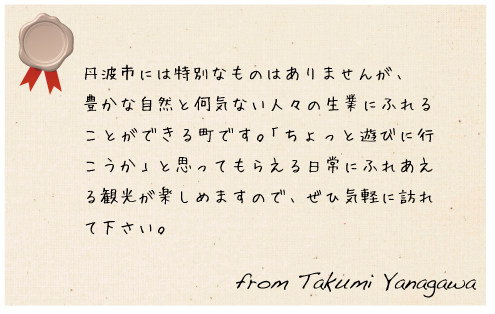 丹波市には特別なものはありませんが、
豊かな自然と何気ない人々の生業にふれる
ことができる町です。「ちょっと遊びに行
こうか」と思ってもらえる日常にふれあえ
る観光が楽しめますので、ぜひ気軽に訪れ
て下さい。
from Takumi Yanagawa